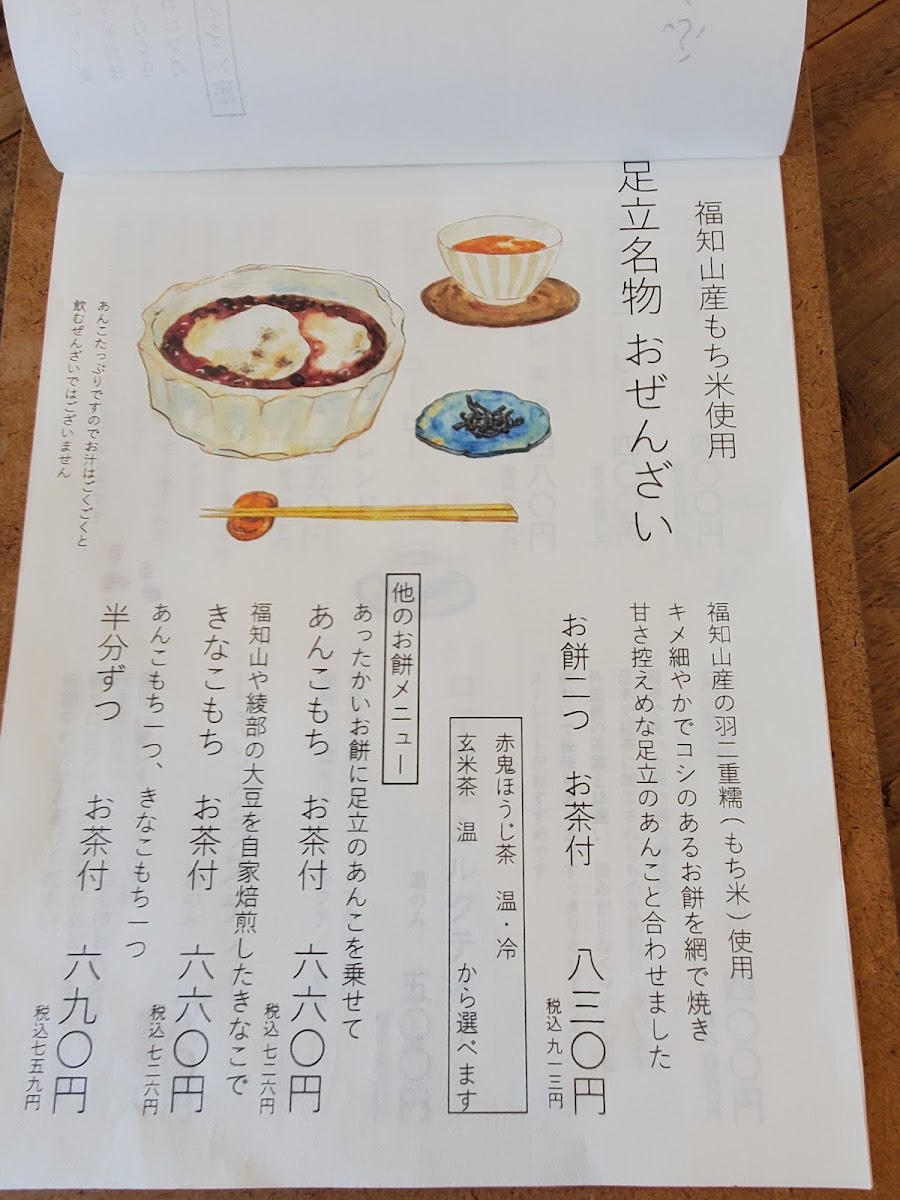 福知山産もち米使用
足立名物 おぜんざい
あんこたっぷりですのでお汁はごくごくと
飲むぜんざいではございません
福知山産の羽二重糯(もち米)使用
キメ細やかでコシのあるお餅を網で焼き
甘さ控えめな足立のあんこと合わせました
お餅二つ お茶付 八三〇円
税込九一三円
赤鬼ほうじ茶 温・冷
玄米茶 温 から選べます
他のお餅メニュー
あったかいお餅に足立のあんこを乗せて
あんこもち お茶付 六六〇円
税込七二六円
福知山や綾部の大豆を自家焙煎したきなこで
きなこもち お茶付 六六〇円
税込七二六円
あんこもち一つ、きなこもち一つ
半分ずつ お茶付 六九〇円
税込七五九円